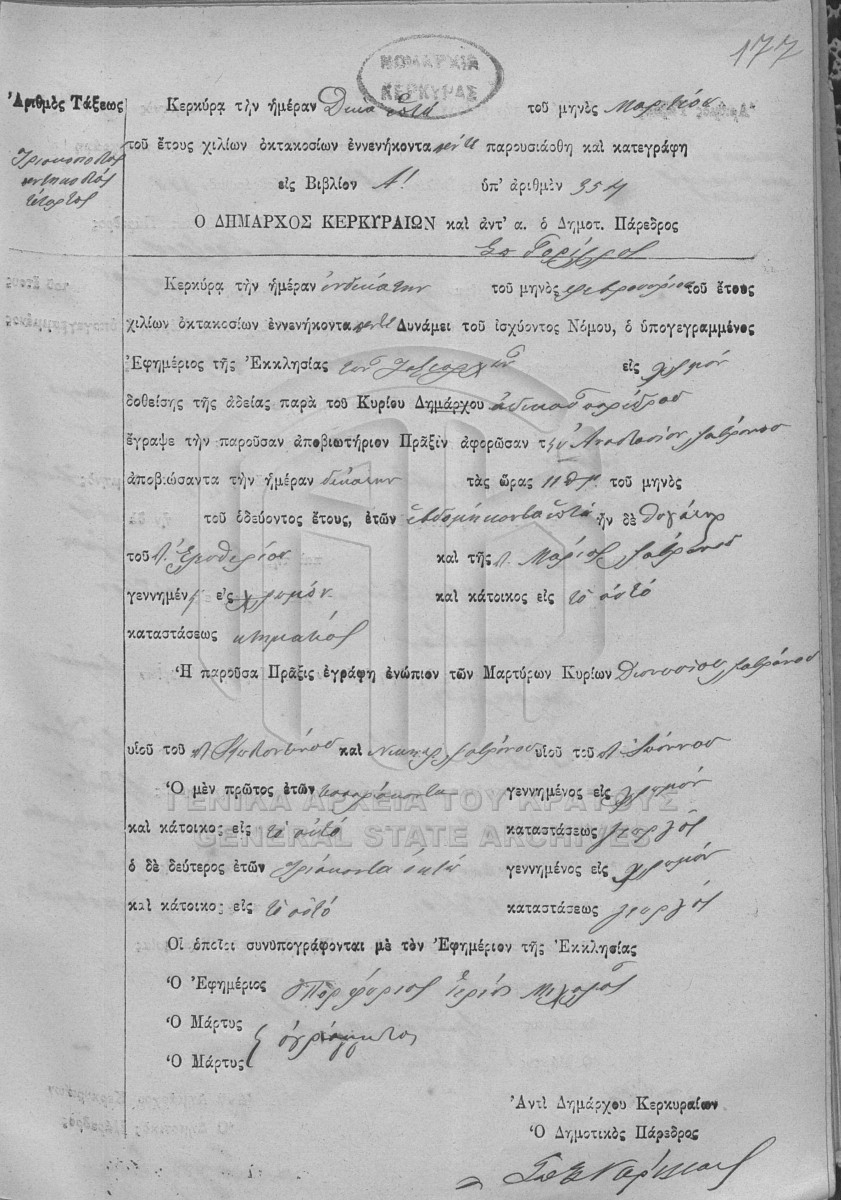 177
ΝΟΜΑΡΧΙΑ
ΚΕΡΚΥΡΑΣ
Ἀριθμὸς Τάξεως
Τριακοσιοστὸς
πεντηκοστὸς
τέταρτος
Κερκύρᾳ τὴν ἡμέραν Δεκα ἑπτὰ τοῦ μηνὸς Μαρτίου
τοῦ ἔτους χιλίων ὀκτακοσίων ἐννενήκοντα πέντε παρουσιάσθη καὶ κατεγράφη
εἰς Βιβλίον Α! ὑπ' ἀριθμὸν 354
Ὁ ΔΗΜΑΡΧΟΣ ΚΕΡΚΥΡΑΙΩΝ καὶ ἀντ' α. ὁ Δημοτ. Πάρεδρος
Κερκύρᾳ τὴν ἡμέραν ἑνδεκάτην τοῦ μηνὸς Φεβρουαρίου τοῦ ἔτους
χιλίων ὀκτακοσίων ἐννενήκοντα πέντε Δυνάμει τοῦ ἰσχύοντος Νόμου, ὁ ὑπογεγραμμένος
Ἐφημέριος τῆς Ἐκκλησίας τοῦ Ταξιάρχου εἰς Χλομόν
δοθείσης τῆς ἀδείας παρὰ τοῦ Κυρίου Δημάρχου εἰδικοῦ παρέδρου
ἔγραψε τὴν παροῦσαν ἀποβιωτήριον Πρᾶξιν ἀφορῶσαν τ Ἀναστασίαν
ἀποβιώσαντα τὴν ἡμέραν δεκάτην τὰς ὥρας 11 π.μ. τοῦ μηνὸς
τοῦ ὁδεύοντος ἔτους, ἐτῶν ἑβδομήκοντα ἑπτὰ ἦν δὲ θυγάτηρ
τοῦ π. Ἐλευθερίου καὶ τῆς π. Μαρίας
γεννημέν εἰς Χλομόν καὶ κάτοικος εἰς τὸ αὐτό
καταστάσεως κτηματίας
Ἡ παροῦσα Πρᾶξις ἐγράφη ἐνώπιον τῶν Μαρτύρων Κυρίων Διονυσίου
υἱοῦ τοῦ π. καὶ υἱοῦ τοῦ π. Ἰωάννου
Ὁ μὲν πρῶτος ἐτῶν τεσσαράκοντα γεννημένος εἰς Χλομόν
ΓΕΝΙΚΑ ΑΡΧΕΙΑ ΤΟΥ ΚΡΑΤΟΥΣ
καὶ κάτοικος εἰς τὸ αὐτό καταστάσεως γεωργός
GENERAL STATE ARCHIVES
ὁ δὲ δεύτερος ἐτῶν τριάκοντα ὀκτώ γεννημένος εἰς Χλομόν
καὶ κάτοικος εἰς τὸ αὐτό καταστάσεως γεωργός
Οἱ ὁποῖοι συνυπογράφονται μὲ τὸν Ἐφημέριον τῆς Ἐκκλησίας
Ὁ Ἐφημέριος Πορφύριος ἱερεὺς
Ὁ Μάρτυς
ἀγράμματοι
Ὁ Μάρτυς
Ἀντὶ Δημάρχου Κερκυραίων
Ὁ Δημοτικὸς Πάρεδρος